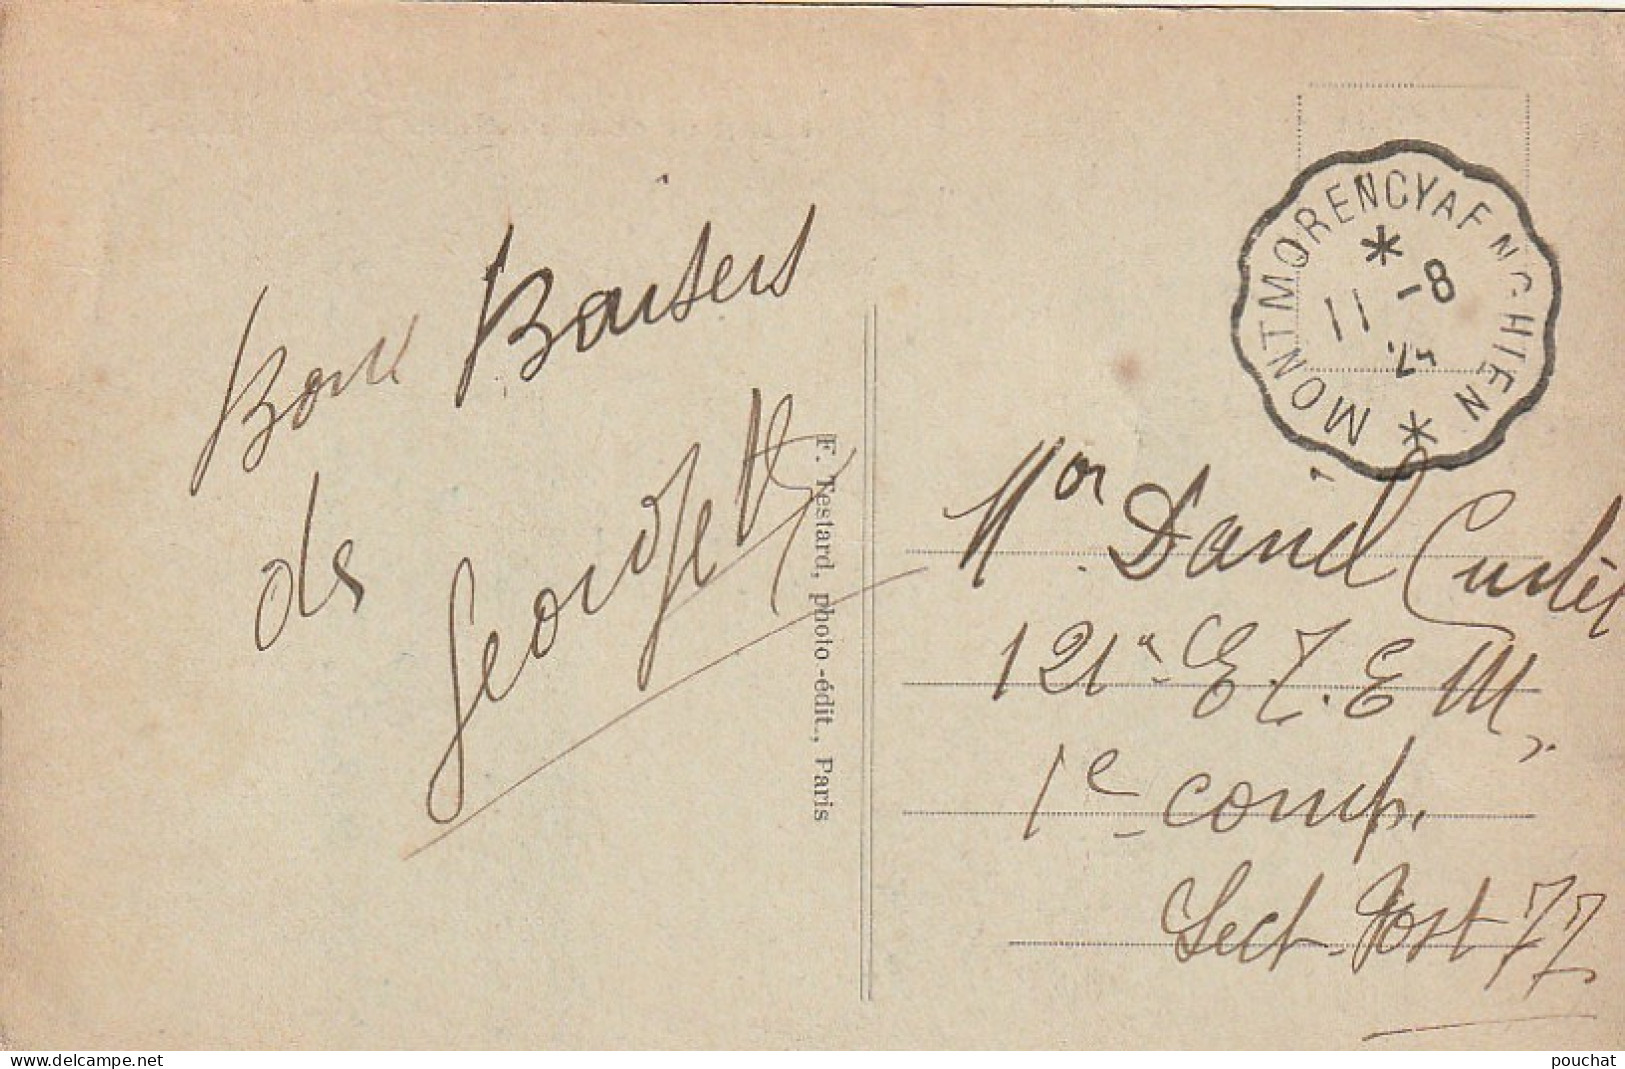 Bons Baisers
de
Georgette
F. Testard, photo-édit., Paris
MONTMORENCY A ENGHIEN
11 -8
Mor Daniel
121e
1e comp.
Sect. Post 77
www.delcampe.net
pouchat